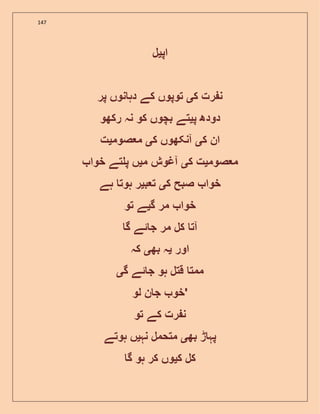 147
اپیل
نفرت کی توپوں کے دہانوں پر
دودھ پیتے بچوں کو نہ رکھو
ان کی آنکھوں کی معصومیت
معصومیت کی آغوش میں پلتے خواب
خواب صبح کی تعبیر ہوتا ہے
خواب مر گیے تو
آتا کل مر جائے گا
اور یہ بھی کہ
ممتا قتل ہو جائے گی
'خوب جان لو
نفرت کے تو
پہاڑ بھی متحمل نہیں ہوتے
کل کیوں کر ہو گا